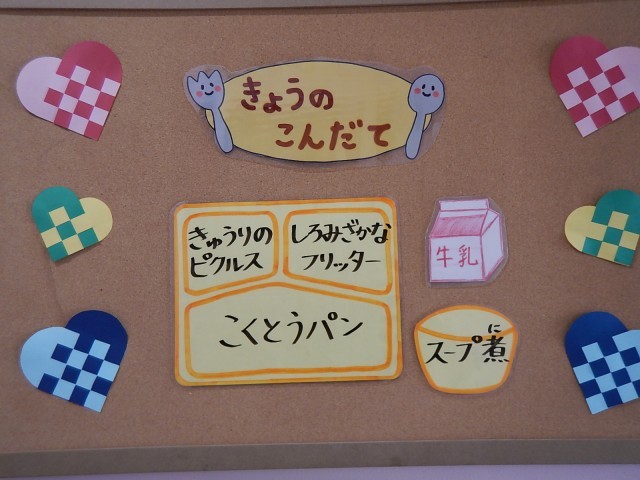 きょうの
こんだて
きゅうりの
ピクルス
しろみざかな
フリッター
こくとうパン
牛乳
に
スープ煮